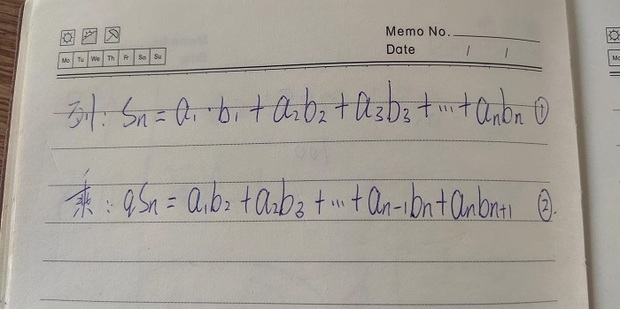 Memo No.
Date / /
Mo Tu We Th Fr Sa Su
列: Sn = a₁·b₁ + a₂b₂ + a₃b₃ + ... + aₙbₙ ①
乘: qSn = a₁b₂ + a₂b₃ + ... + aₙ₋₁bₙ + aₙbₙ₊₁ ②.